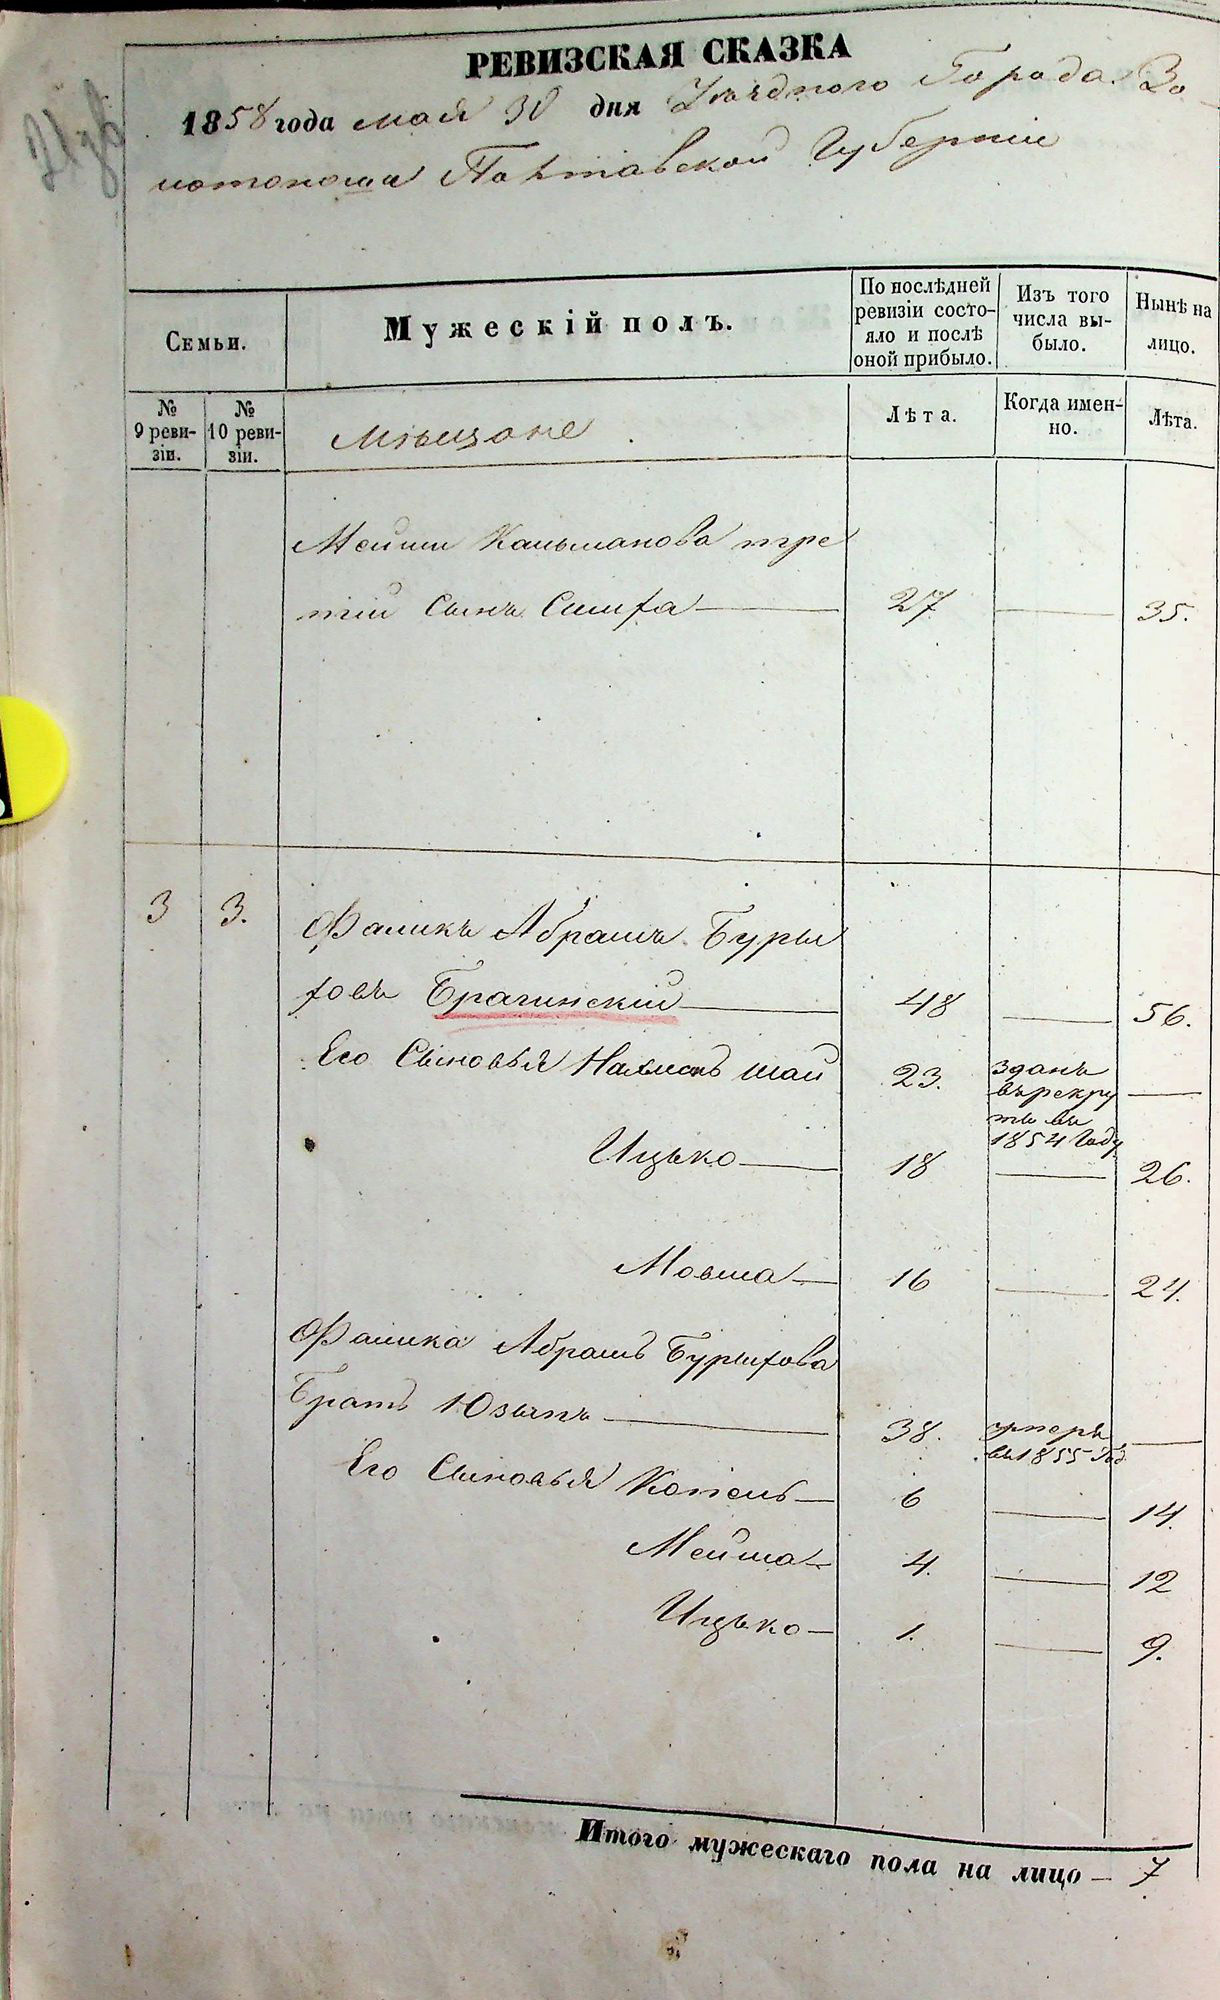 РЕВИЗСКАЯ СКАЗКА
1858 года мая 30 дня Уѣзднаго Города Зо-
лотоноши Полтавской Губерніи
Семьи.
Мужескій полъ.
По послѣдней ревизіи состо-
яло и послѣ
оной прибыло.
Изъ того
числа вы-
было.
Нынѣ на
лицо.
№
9 реви-
зіи.
№
10 реви-
зіи.
Мѣщане
Лѣта.
Когда имен-
но.
Лѣта.
Мейши Кальманова тре
тій Сынъ Симха 27 35.
3 3. Фаликъ Абрамъ Буры
ховъ Брагинскій 48 56.
Его Сыновья шай 23. Зданъ
въ рекру
ты въ
1854 Году
Ицько 18 26.
Мовша 16 24.
Фалика Абрамъ Бурыхова
Братъ Юзыпъ 38. умеръ
въ 1855 Год
Его Сыновья Копель 6 14.
Мейша 4. 12
Ицько 1. 9.
Итого мужескаго пола на лицо — 7